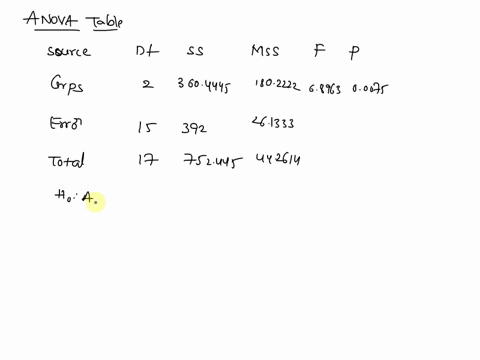 ANOVA Table
Source Df SS MSS F P
Grps 2 360.4445 180.2222 6.8963 0.0075
Error 15 392 26.1333
Total 17 752.445 442614
H₀: A.